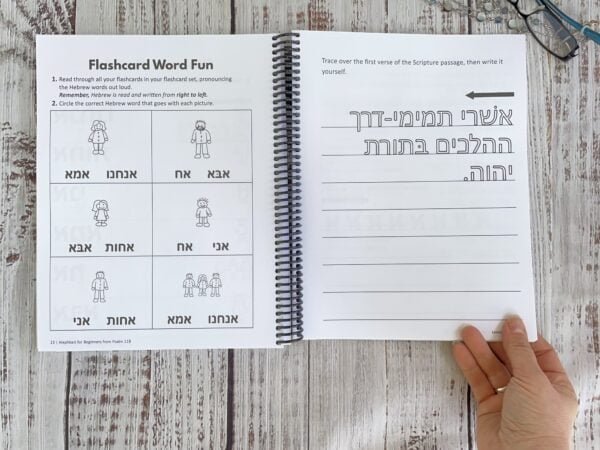 Flashcard Word Fun
1. Read through all your flashcards in your flashcard set, pronouncing
the Hebrew words out loud.
Remember, Hebrew is read and written from right to left.
2. Circle the correct Hebrew word that goes with each picture.
אנחנו אמא
אבּא אח
אחות אבּא
אני אח
אחות אני
אנחנו אמא
| Alephbet for Beginners from Psalm 119
Trace over the first verse of the Scripture passage, then write it
yourself.
אשׁרי תמימי-דרך
ההלכים בּתורת
יהוה.